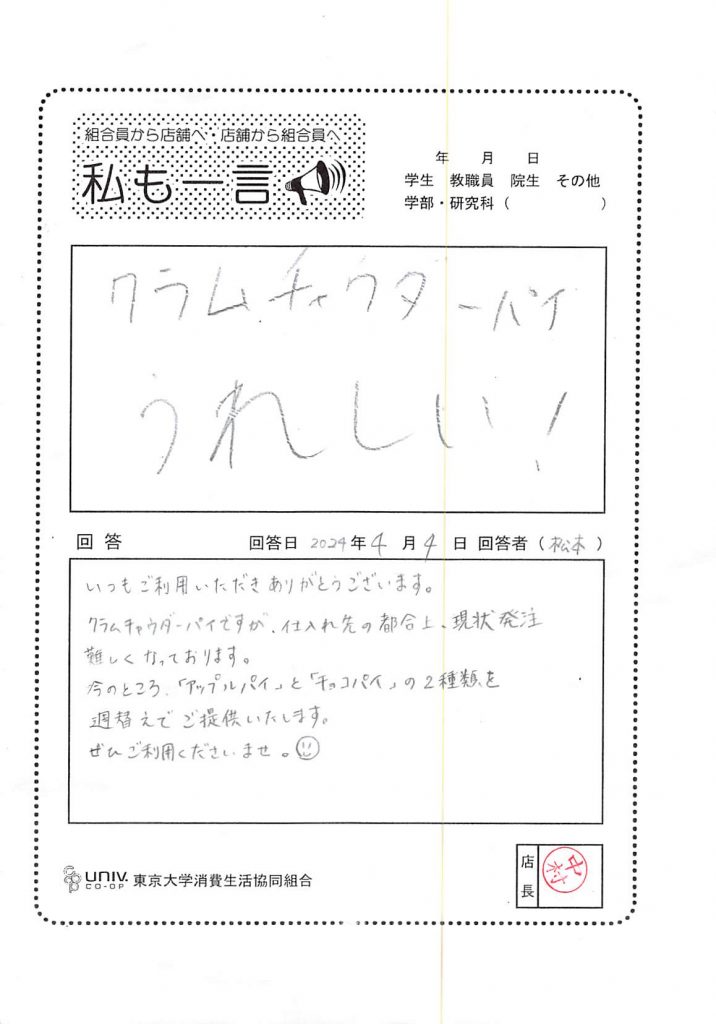 組合員から店舗へ・店舗から組合員へ
私も一言
年 月 日
学生 教職員 院生 その他
学部・研究科( )
クラムチャウダーパイ
うれしい!
回答 回答日 2024年4月4日 回答者(松本)
いつもご利用いただきありがとうございます。
クラムチャウダーパイですが、仕入れ先の都合上、現状発注
難しくなっております。
今のところ、「アップルパイ」と「チョコパイ」の2種類を
週替えでご提供いたします。
ぜひご利用くださいませ。
UNIV.
CO-OP
東京大学消費生活協同組合
店長
中村